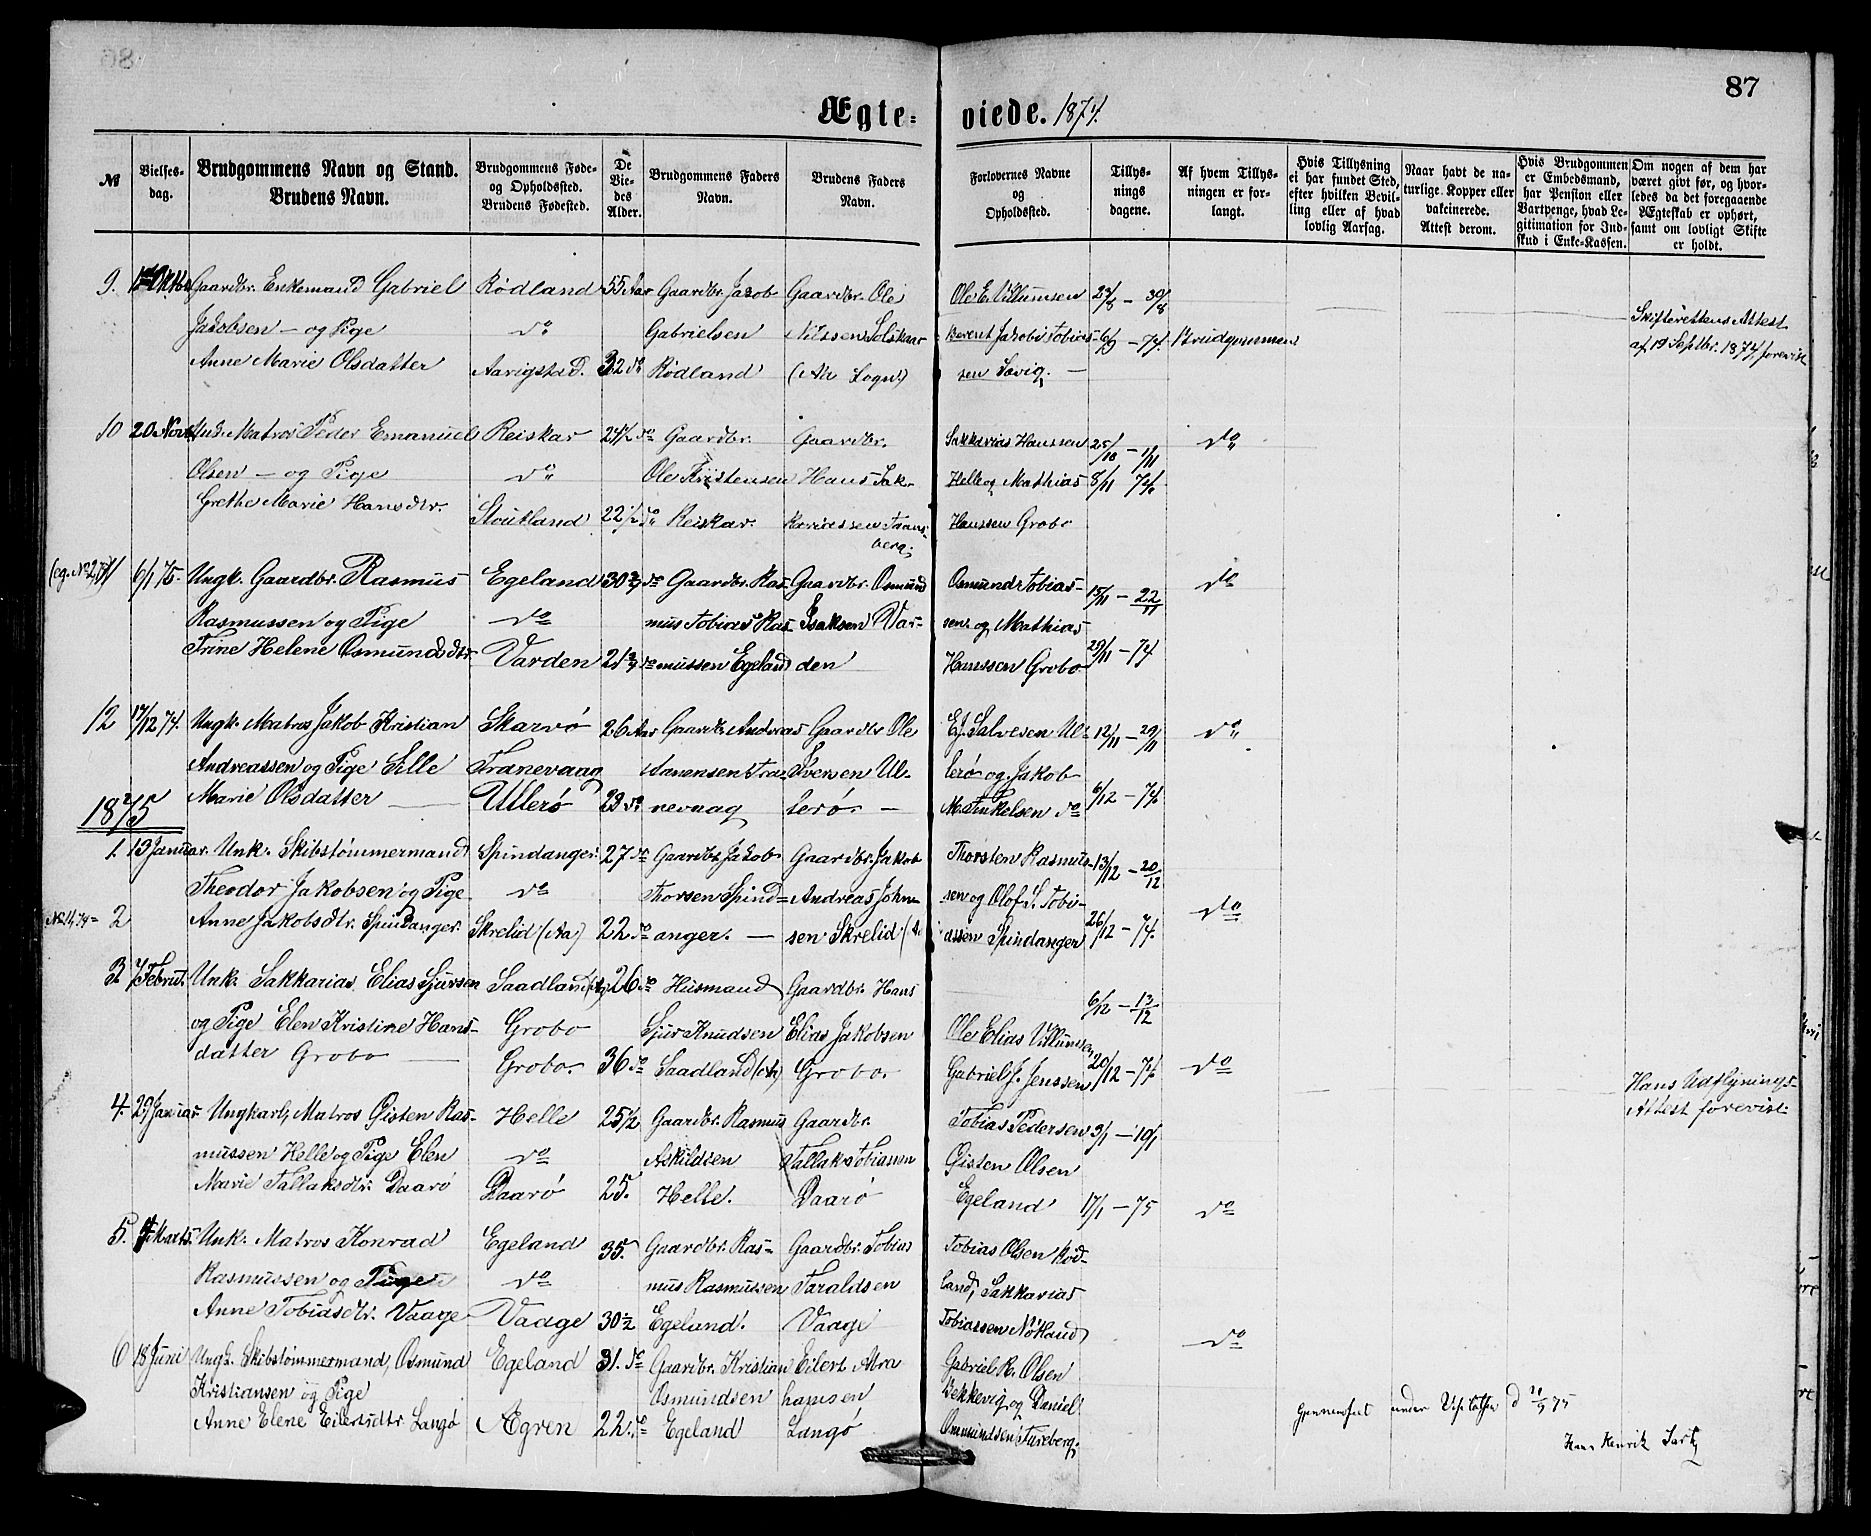 87
Ægteviede. 1874.
№
Vielsesdag.
Brudgommens Navn og Stand.
Brudens Navn.
BrudgommensFøde- og Opholdssted.
Brudens Fødested.
De Viedes Alder.
Brudgommens Faders Navn.
Brudens Faders Navn.
Forlovernes Navne og Opholdssted.
Tillysningsdagene.
Af hvem Tillysningen er forlangt.
Hvis Tillysning ei har fundet Sted, efter hvilken Bevilling eller af hvad lovlig Aarsag.
Naar havt de naturlige Kopper eller vakcinerede. Attest derom.
Hvis Brudgommen er Embedsmand, har Pension eller Vartpenge, hvad Legitimation for Indskud i Enke-Kassen.
Om nogen af dem har været givt før, og hvorledes da det foregaaende Ægteskab er ophørt, samt om lovligt Skifte er holdt.
9. Gaardbr. Enkemand Gabriel Rødland 55 Aar Gaardbr. Jacob Gaardbr. Ole Ole E. Villumsen 23/8 – 30/8
Jakobsen – og Pige do Gabrielsen Nilssen Berent Jakob Tobias- 6/9 – 74. Brudgommen Skifterettens Attest
Anne Marie Olsdatter 32 do Rødland (Aa Sogn) sen Lovig. – af 19 Septbr. 1874 forevist
10 20 Novb. Matros Peder Emanuel Reiskar 24½ do Gaardbr. Gaardbr. Sakkarias Hanssen 25/10 – 1/11 do
Olsen – og Pige do Ole Kristensen Hans Sak- Helle og Mathias 8/11 74.
Grethe Marie Hansdtr. Stoutland 22½ do Reiskar. Hanssen Grobo
11 6/1 75. Ungk. Gaardbr. Rasmus Egeland 30 do Gaardbr. Ras- Gaardbr. Osmund Osmund Tobias- 15/11 – 22/11 do
Rasmussen og Pige do mus Tobias Ras- Isaksen Var- sen og Mathias
Trine Helene Osmundsdtr. Varden 21 do mussen Egeland den Hanssen Grobo 29/11 – 74
12 17/12 74. Ungk. Matros Jakob Kristian Skarvø 26 Aar Gaardb. Andreas Gaardbr. Ole E. J. Salvesen Ul- 12/11 – 29/11 do
Andreassen og Pige Sille Tranevaag Aanensen Tra- Iversen Ul- lerø og Jakob
Marie Olsdatter Ullerø 23 do nevaag lerø – M. Terkelsen do 6/12 – 74.
1875
1. 13 Januar. Unk. Skibstømmermand Spindanger. 27 do Gaardbr. Jakob Gaardbr. Jakob Thorsten Rasmus- 13/12 – 20/12
Theodor Jakobsen og Pige do Thorsen Spind- Andreas John- sen og Olof S. Tobi-
No 11, 74 = 2 Anne Jakobsdtr. Spindanger. Skrelid (Aa) 22 do anger. – sen Skrelid assen Spindanger 26/12 – 74. do
3. 7 Februr. Unk. Sakkarias Elias Sjursen Saadland 26 do Husmand Gaardbr. Hans 6/12 – 13/12
og Pige Elen Kristine Hans- Grobo Sjur Knudsen Elias Jakobsen Ole Elias Villumsen
datter Grobo Grobo. 36 do Saadland Grobo. Gabriel J. Jenssen 20/12 – 74. do Hans Udflytnings-
Attest forevist.
4. 29 Januar Ungkarl, Matros Gisten Ras- Helle 25½ Gaardbr. Rasmus Gaardbr. Tobias Pedersen 3/1 – 10/1
mussen Helle og Pige Elen do Askildsen Tallak Tobiassen Gisten Olsen
Marie Tallaksdtr. Daarø Daarø 25. Helle. Daarø Egeland 17/1 – 75 do
5. Marts. Unk. Matros Konrad Egeland 35. Gaardbr. Ras- Gaardbr. Tobias Tobias Olsen Rød-
Rasmussen og Pige do mus Rasmussen Taraldsen land, Sakkarias
Anne Tobiasdtr. Vaage Vaage 30½ Egeland. Vaage Tobiassen Nøkland do
6 18 Juni Ungk. Skibstømmermand, Osmund Egeland 31. do Gaardbr. Kristian Eilert Abra Gabriel R. Olsen
Kristiansen og Pige Osmundsen hamsen Bekkevig og Daniel
Anne Elene Eilertsdtr. Langø Ægren 22. do Egeland Langø Ommundsen Tureberg.
Gjennemseet under
Hans Henrik